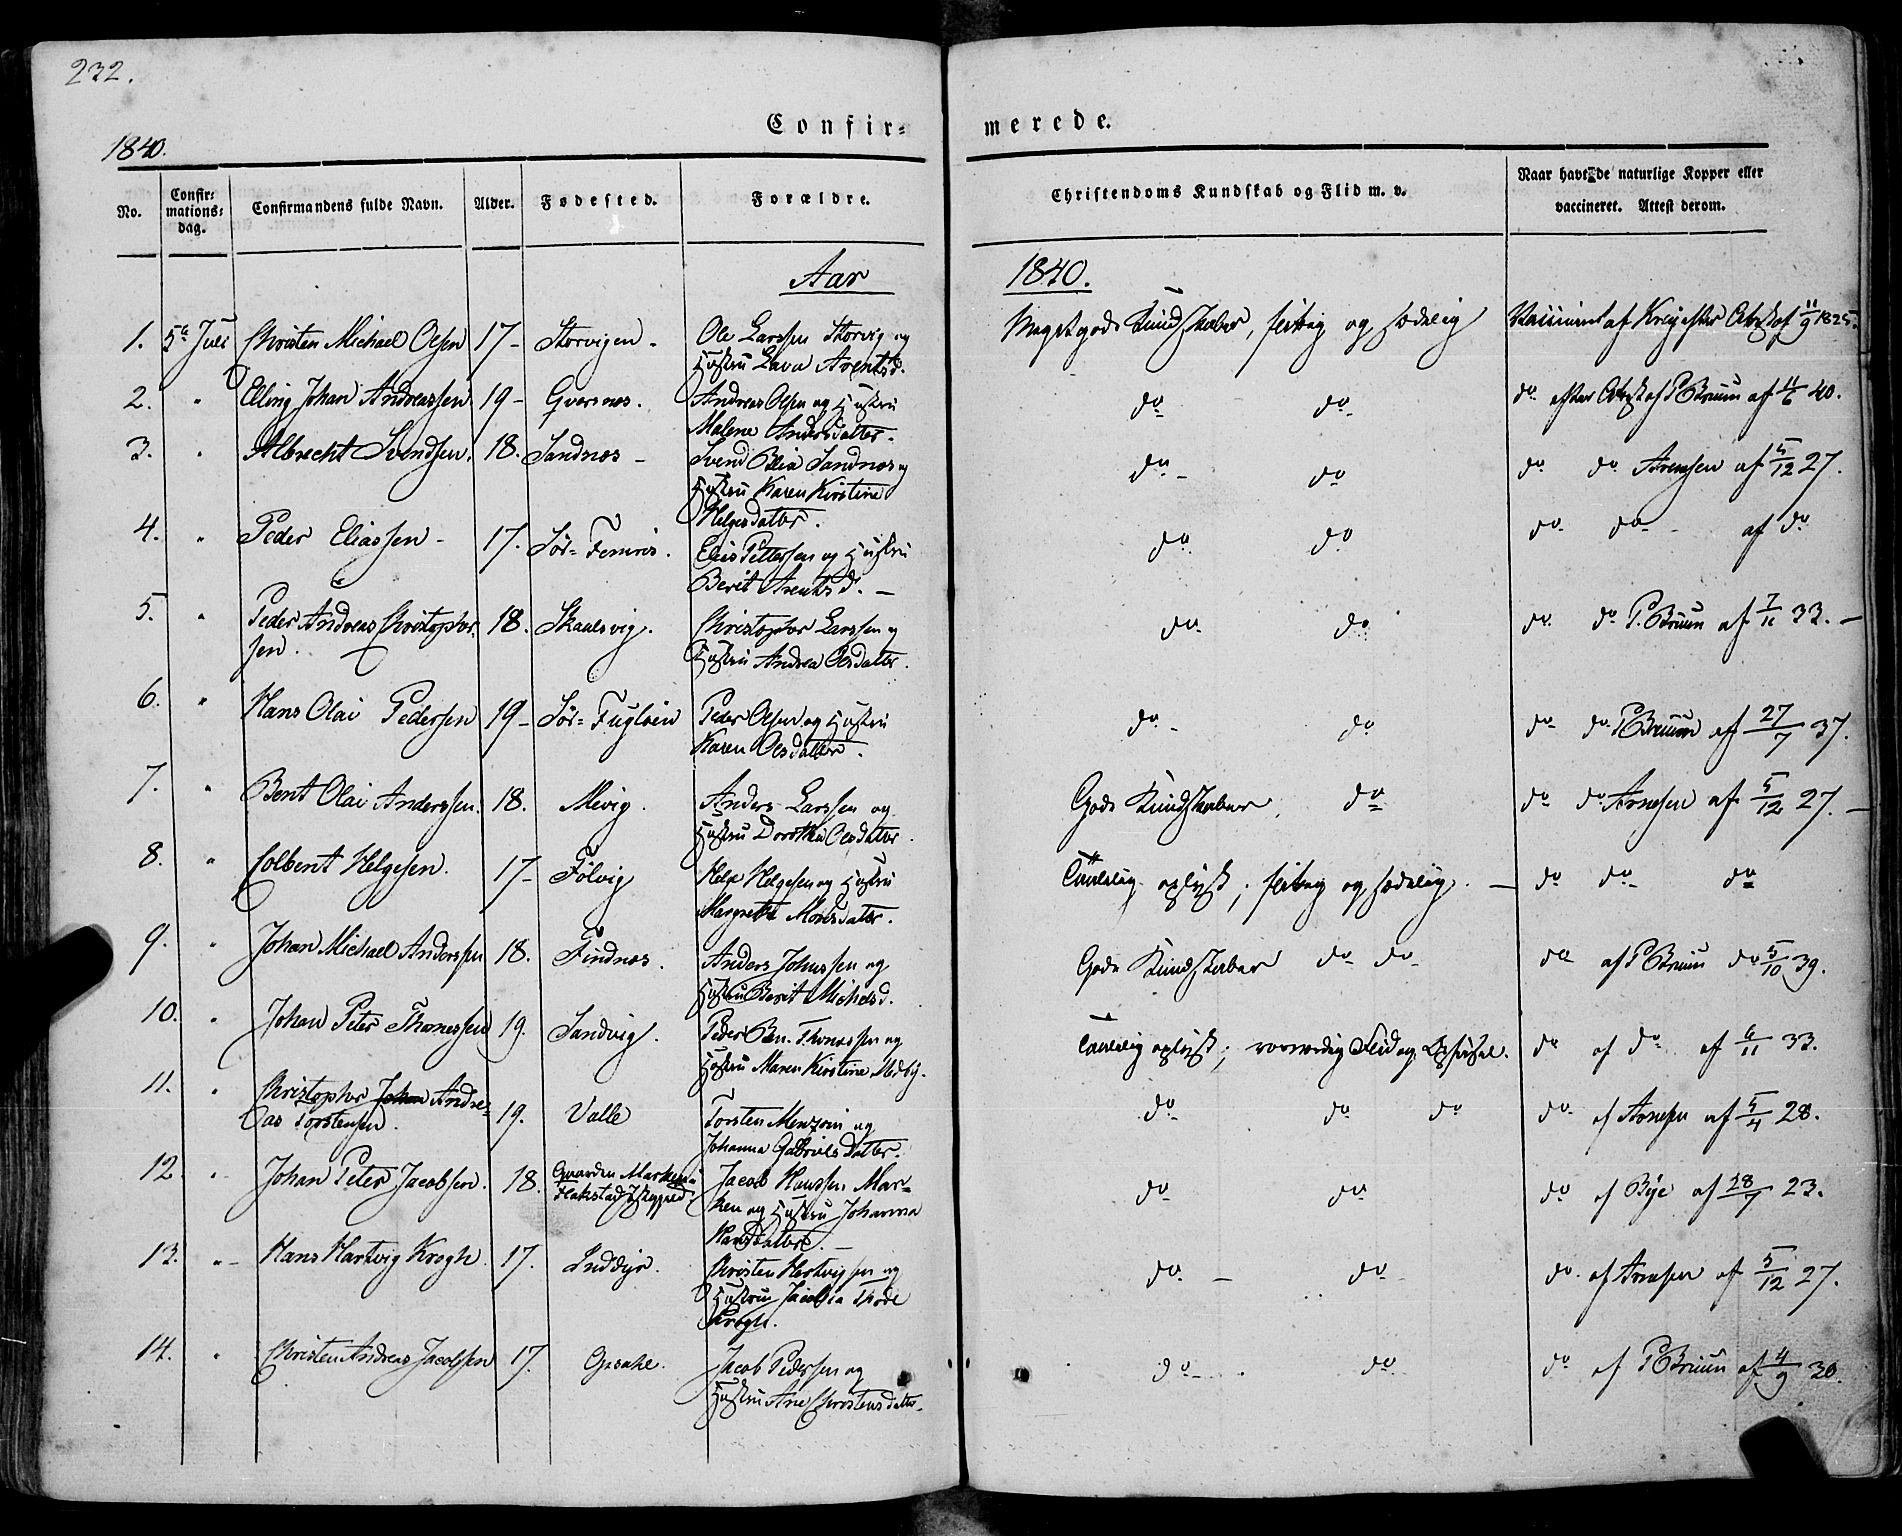 232.
Confir=
merede.
1840.
No.
Confir=
mations=
dag.
Confirmandens fulde Navn.
Alder.
Fødested.
Forældre.
Christendoms Kundskab og Flid m. v.
Naar havt de naturlige Kopper eller
vaccineret. Attest derom.
Aar
1840.
1. 5te Juli Christen Michael Olsen 17- Storvigen - Ole Larssen Storvig og Meget gode Kundskaber, flittig og sædelig Vaccineret af Krey efter Attest af 11/9 1825.
Hustru Lava Arentsd.
2. " Elling Johan Andreassen 19- Gversnæs. Andreas Olsen og Hustru do do do efter Attest af P Bruun af 11/6 40.
Malene Andersdatter.
3. " Albrecht Svendsen. 18. Sandnæs - Svend Sandnæs og do - do do do Arnesen af 5/12 27.
Hustru Karen Kirstine
Helgesdatter.
4. " Peder Eliassen - 17. Sør= Elias Pettersen og Hustru do do do do - af do
Berit Arentsd. -
5. " Peder Andreas Christophor 18. Skaalsvig. Christophor Larssen og do do do do P. Bruun af 7/11 33. -
sen. Hustru Andrea Olsdatter.
6. " Hans Olai Pedersen 19- Sør= Fugløen Peder Olsen og Hustru do - do do do P Bruun af 27/7 37.
Karen Olsdatter.
7. " Bent Olai Anderssen. 18. Mevig. Anders Larssen og Gode Kundskaber, do do do Arnesen af 5/12 27. -
Hustru Dorothea Olsdatter.
8. " Colbent Helgesen. 17- Følvig Helge Helgesen og Hustru Taalelig oplyst; flittig og sædelig. - do do - do
Margrethe Monsdatter.
9. " Johan Michael Anderssen 18. Findnæs. Anders Johnssen og Gode Kundskaber do do do af P Bruun do 5/10 39.
Hustru Berit Michelsd.
10. " Johan Peter Thomessen 19. Sandvig. Peder Ben. Thomassen og Taalelig oplyst; Flid og Opførsel. do af do af 6/11 33.
Hustru Maren Kirstine Medby.
11. " Christophor Johan Andre= 19. Valle Torsten Menzoni og do do do do af Arnesen af 5/4 28.
as Torstensen. Johanna Gabrielsdatter.
12. " Johan Peter Jacobsen. 18. Gaarden Marken i Jacob Hanssen Mar= do do do af Bye af 28/7 23.
Flakstad ken og Hustru Johanna
Hansdatter. -
13. " - Hans Hartvig Krogh. 17. Inddyr. Christen Hartvigsen og do - do do af Arnesen af 5/12 27.
Hustru Jacobia Thode
Krogh.
14. " Christen Andreas Jacobsen 17. Jacob Pedersen og do - do do af P Bruun af 4/9 30.
Hustru Ane Christensdatter.